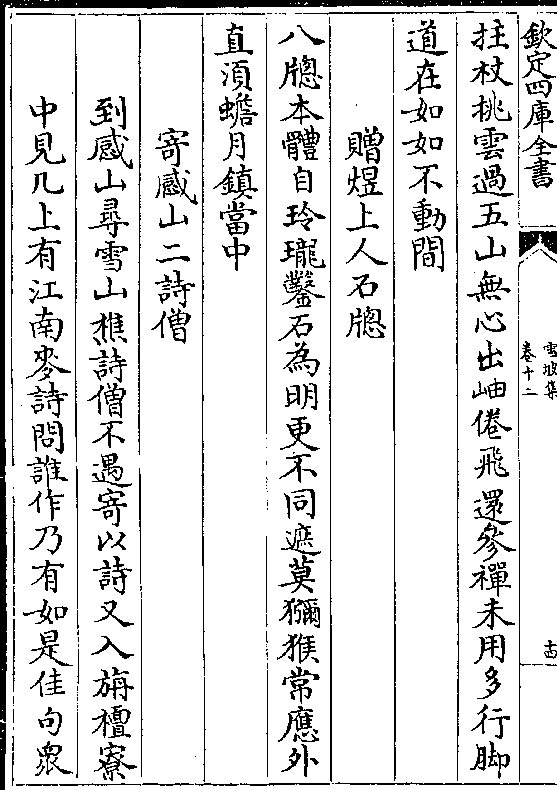 欽定四庫全書
雪坡集
卷十二
十四
拄杖挑雲過五山無心出岫倦飛還參禪未用多行脚
道在如如不動間
贈煜上人石牕
八牕本體自玲瓏鑿石為明更不同遮莫獼猴常應外
直須蟾月鎮當中
寄感山二詩僧
到感山尋雪山樵詩僧不遇寄以詩又入旃檀寮
中見几上有江南麥詩問誰作乃有如是佳句衆